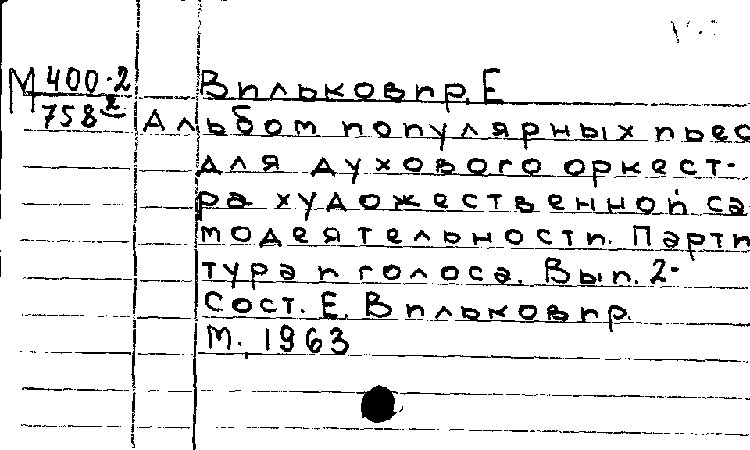 М 400-2 Вильковир, Е
758² Альбом популярных пьес
для духового оркест-
ра художественной са
модеятельности. Парти
тура и голоса. Вып. 2-
Сост. Е. Вильковир.
М. 1963